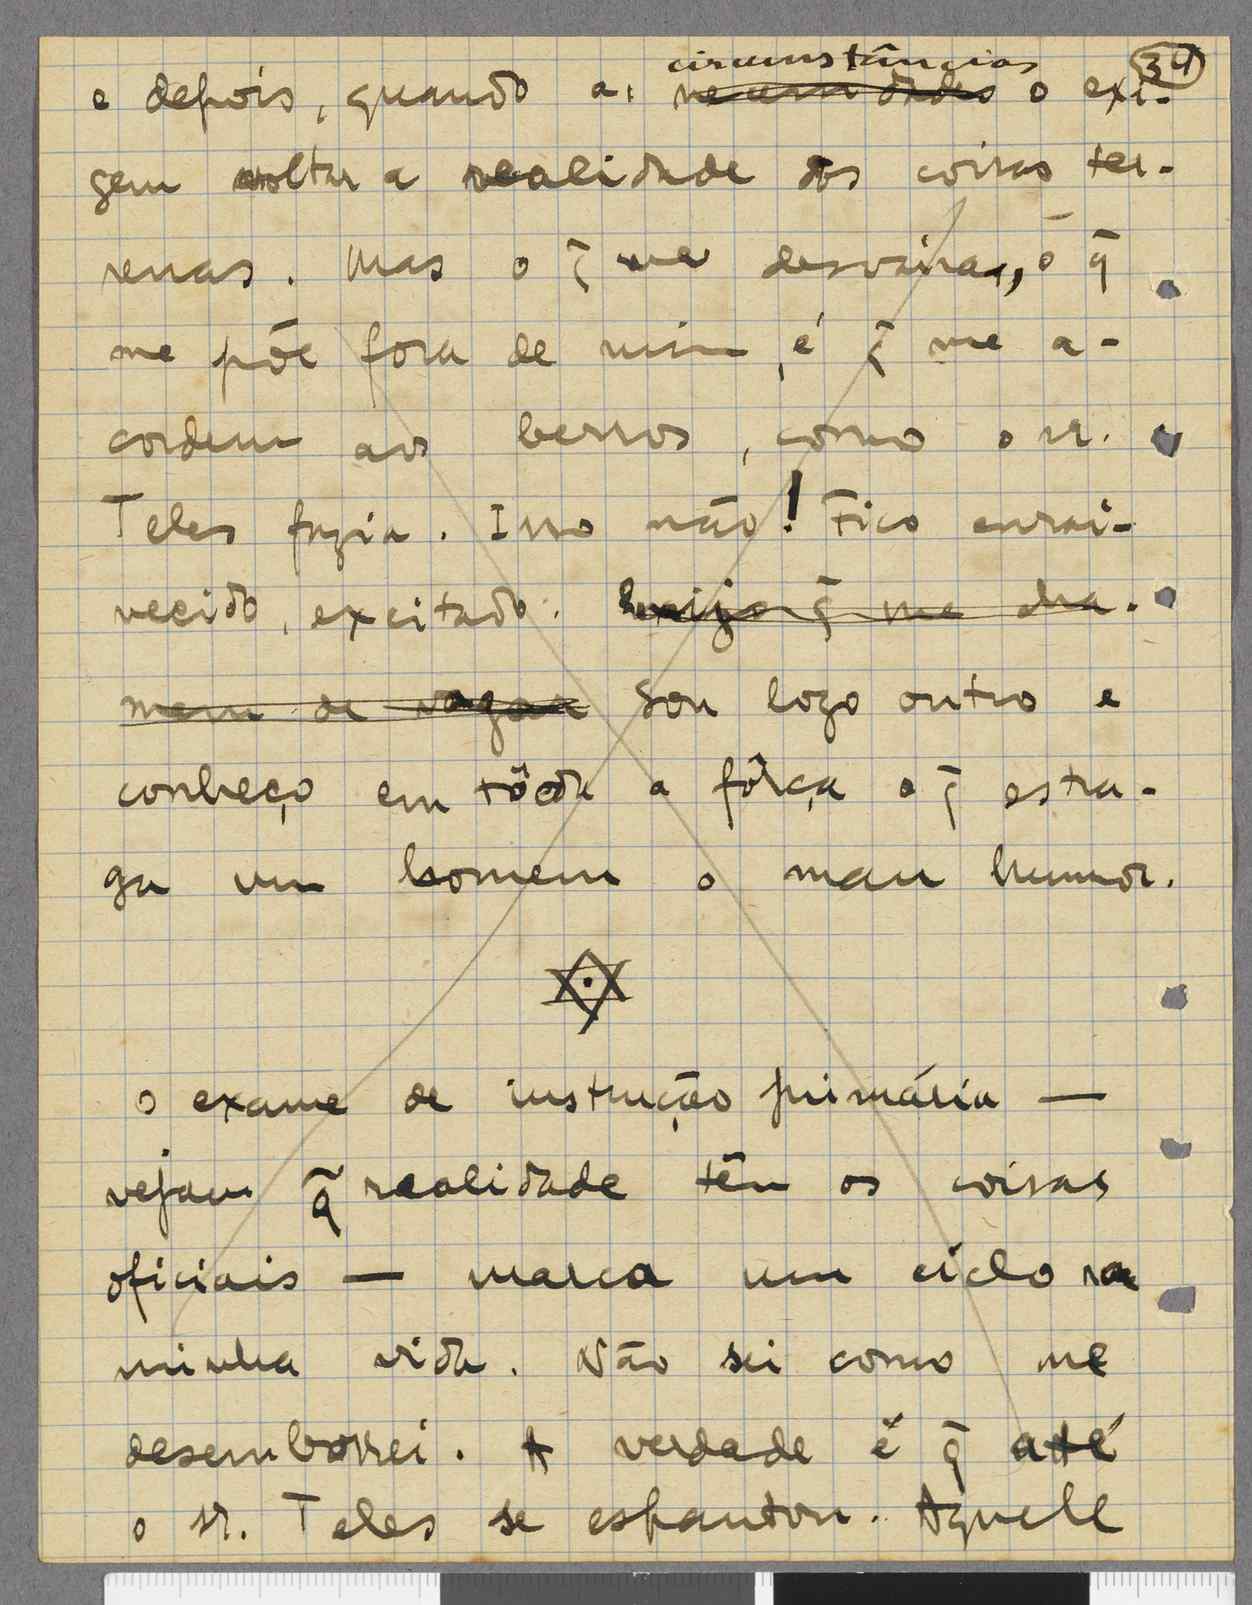 34
circunstâncias
e depois, quando as necessidades o exi-
gem voltar a realidade das coisas ter-
renas. Mas o q̃ me desvaira, o q̃
me põe fora de mim, é q̃ me a-
cordem aos berros, como o sr.
Teles fazia. Isso não! Fico enrai-
vecido, excitado. Exijo q̃ me cha-
mem de vagar Sou logo outro e
conheço em tôda a fôrça o q̃ estra-
ga um homem o mau humor.
O exame de instrução primária —
vejam q̃ realidade têm as coisas
oficiais — marca um ciclo na
minha vida. Não sei como me
desemborrei. A verdade é q̃ até
o sr. Teles se espantou. Aquele